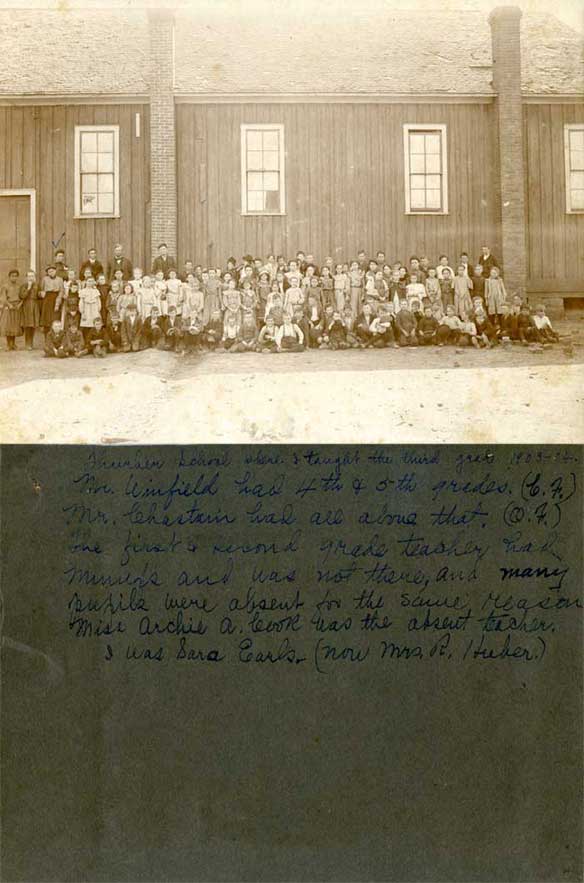 Thurber School where I taught the third grade 1903-04.
Mr. Winfield had 4th & 5th grades. (C. F.)
Mr. Chastain had all above that. (O. F.)
The first & second grade teacher had
mumps and was not there, and many
pupils were absent for the same reason
Miss Archie A. Cook was the absent teacher.
I was Sara Earls. (now Mrs. R. Huber.)